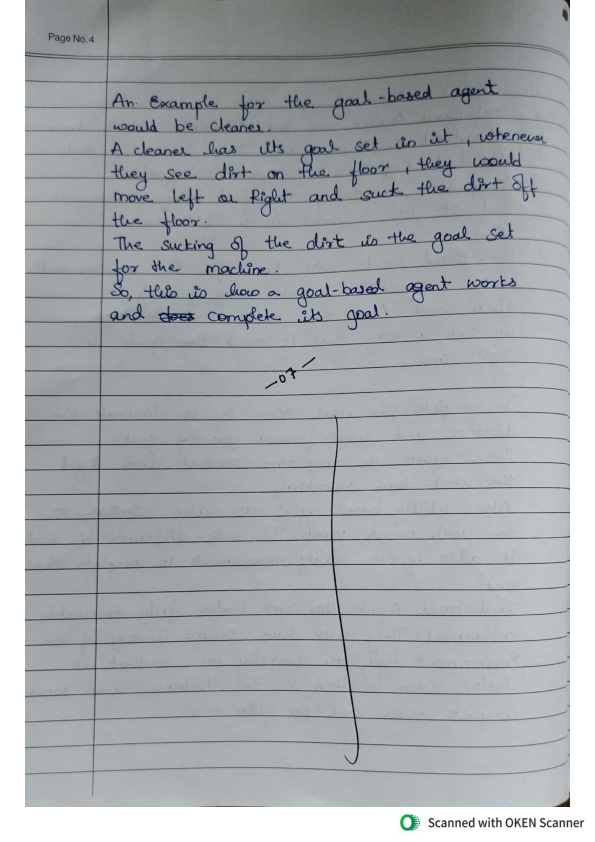 Page No. 4
An Example for the goal-based agent
would be cleaner.
A cleaner has its goal set in it, whenever
they see dirt on the floor, they would
move left or Right and suck the dirt off
the floor.
The sucking of the dirt is the goal set
for the machine.
So, this is how a goal-based agent works
and does complete its goal.
-07-
Scanned with OKEN Scanner